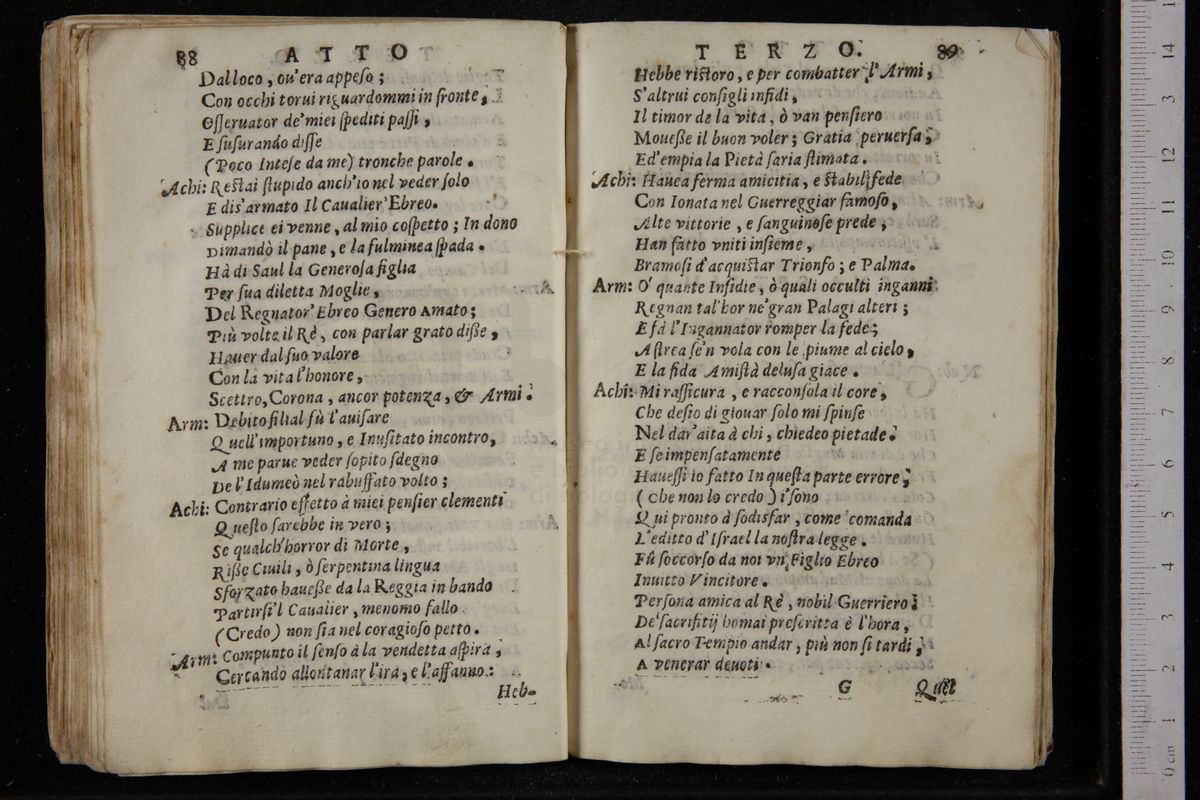 88 ATTO
Dal loco, ou'era appeſo;
Con occhi torui riguardommi in fronte,
Oſſeruator de' miei ſpediti paſſi,
E ſuſurando diſſe
(Poco Inteſe da me) tronche parole.
Achi: Reſtai ſtupido anch'io nel veder ſolo
E dis'armato Il Caualier' Ebreo.
Supplice ei venne, al mio coſpetto; In dono
Dimandò il pane, e la fulminea ſpada.
Hà di Saul la Generoſa figlia
Per ſua diletta Moglie,
Del Regnator' Ebreo Genero Amato;
Più volte il Rè, con parlar grato diſſe,
Hauer dal ſuo valore
Con la vita l'honore,
Scettro, Corona, ancor potenza, & Armi.
Arm: Debito filial fù l'auiſare
Quell'importuno, e Inuſitato incontro,
A me parue veder ſopito ſdegno
De l'Idumeò nel rabuffato volto;
Achi: Contrario effetto à miei penſier clementi
Queſto ſarebbe in vero;
Se qualch'horror di Morte,
Riſſe Ciuili, ò ſerpentina lingua
Sforzato haueſſe da la Reggia in bando
Partirſi'l Caualier, menomo fallo
(Credo) non ſia nel coragioſo petto.
Arm: Compunto il ſenſo à la vendetta aſpira,
Cercando allontanar l'ira, e l'affanno:
Heb-
TERZO. 89
Hebbe riſtoro, e per combatter l'Armi,
S'altrui conſigli infidi,
Il timor de la vita, ò van penſiero
Moueſſe il buon voler; Gratia peruerſa;
Ed'empia la Pietà ſaria ſtimata.
Achi: Hauea ferma amicitia, e ſtabil fede
Con Ionata nel Guerreggiar famoſo,
Alte vittorie, e ſanguinoſe prede,
Han fatto vniti inſieme,
Bramoſi d'acquiſtar Trionfo; e Palma.
Arm: O' quante Inſidie, ò quali occulti inganni
Regnan tal'hor ne' gran Palagi alteri;
E fà l'Ingannator romper la fede;
Aſtrea ſe'n vola con le piume al cielo,
E la fida Amiſtà deluſa giace.
Achi: Mi raſſicura, e racconſola il core,
Che deſio di giouar ſolo mi ſpinſe
Nel dar' aita à chi, chiedeo pietade.
E ſe impenſatamente
Haueſſi io fatto In queſta parte errore;
(che non lo credo) i'ſono
Qui pronto à ſodisfar, come comanda
L'editto d'Iſrael la noſtra legge.
Fù ſoccorſo da noi vn Figlio Ebreo
Inuitto Vincitore.
Perſona amica al Rè, nobil Guerriero;
De' ſacrifitij homai preſcritta è l'hora,
Al ſacro Tempio andar, più non ſi tardi,
A venerar deuoti.
G